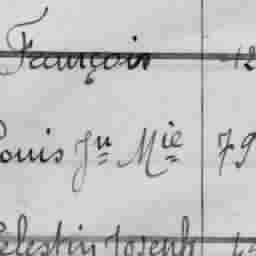 François 12
Louis Jn Mie 79
Celestin Joseph